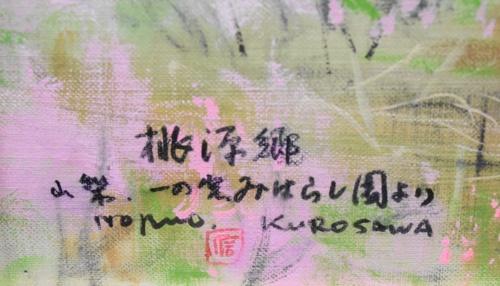 桃源郷
山梨.一の宮みはらし園より
NOBUO. KUROSAWA
信